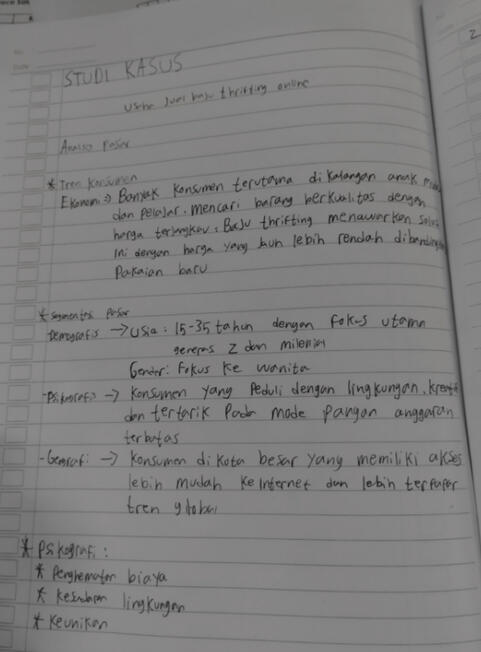 STUDI KASUS
Usaha Jual baju thrifting online
Analisa Pasar
* Tren Konsumen
Ekonomi => Banyak konsumen terutama di kalangan anak
dan pelajar. mencari barang berkualitas dengan
harga terjangkau. Baju thrifting menawarkan
ini dengan harga yang jauh lebih rendah dibandingkan
Pakaian baru
* Segmentasi Pasar
Demografis -> Usia : 15-35 tahun dengan fokus utama
Z dan milenial
Gender: Fokus ke wanita
- Psikografis -> Konsumen yang Peduli dengan lingkungan.
dan tertarik Pada mode anggaran
terbatas
- Geografi -> Konsumen di kota besar yang memiliki akses
lebih mudah ke internet dan lebih terpapar
tren global
* Psikografi :
* Penghematan biaya
* Kesadaran lingkungan
* Keunikan
2